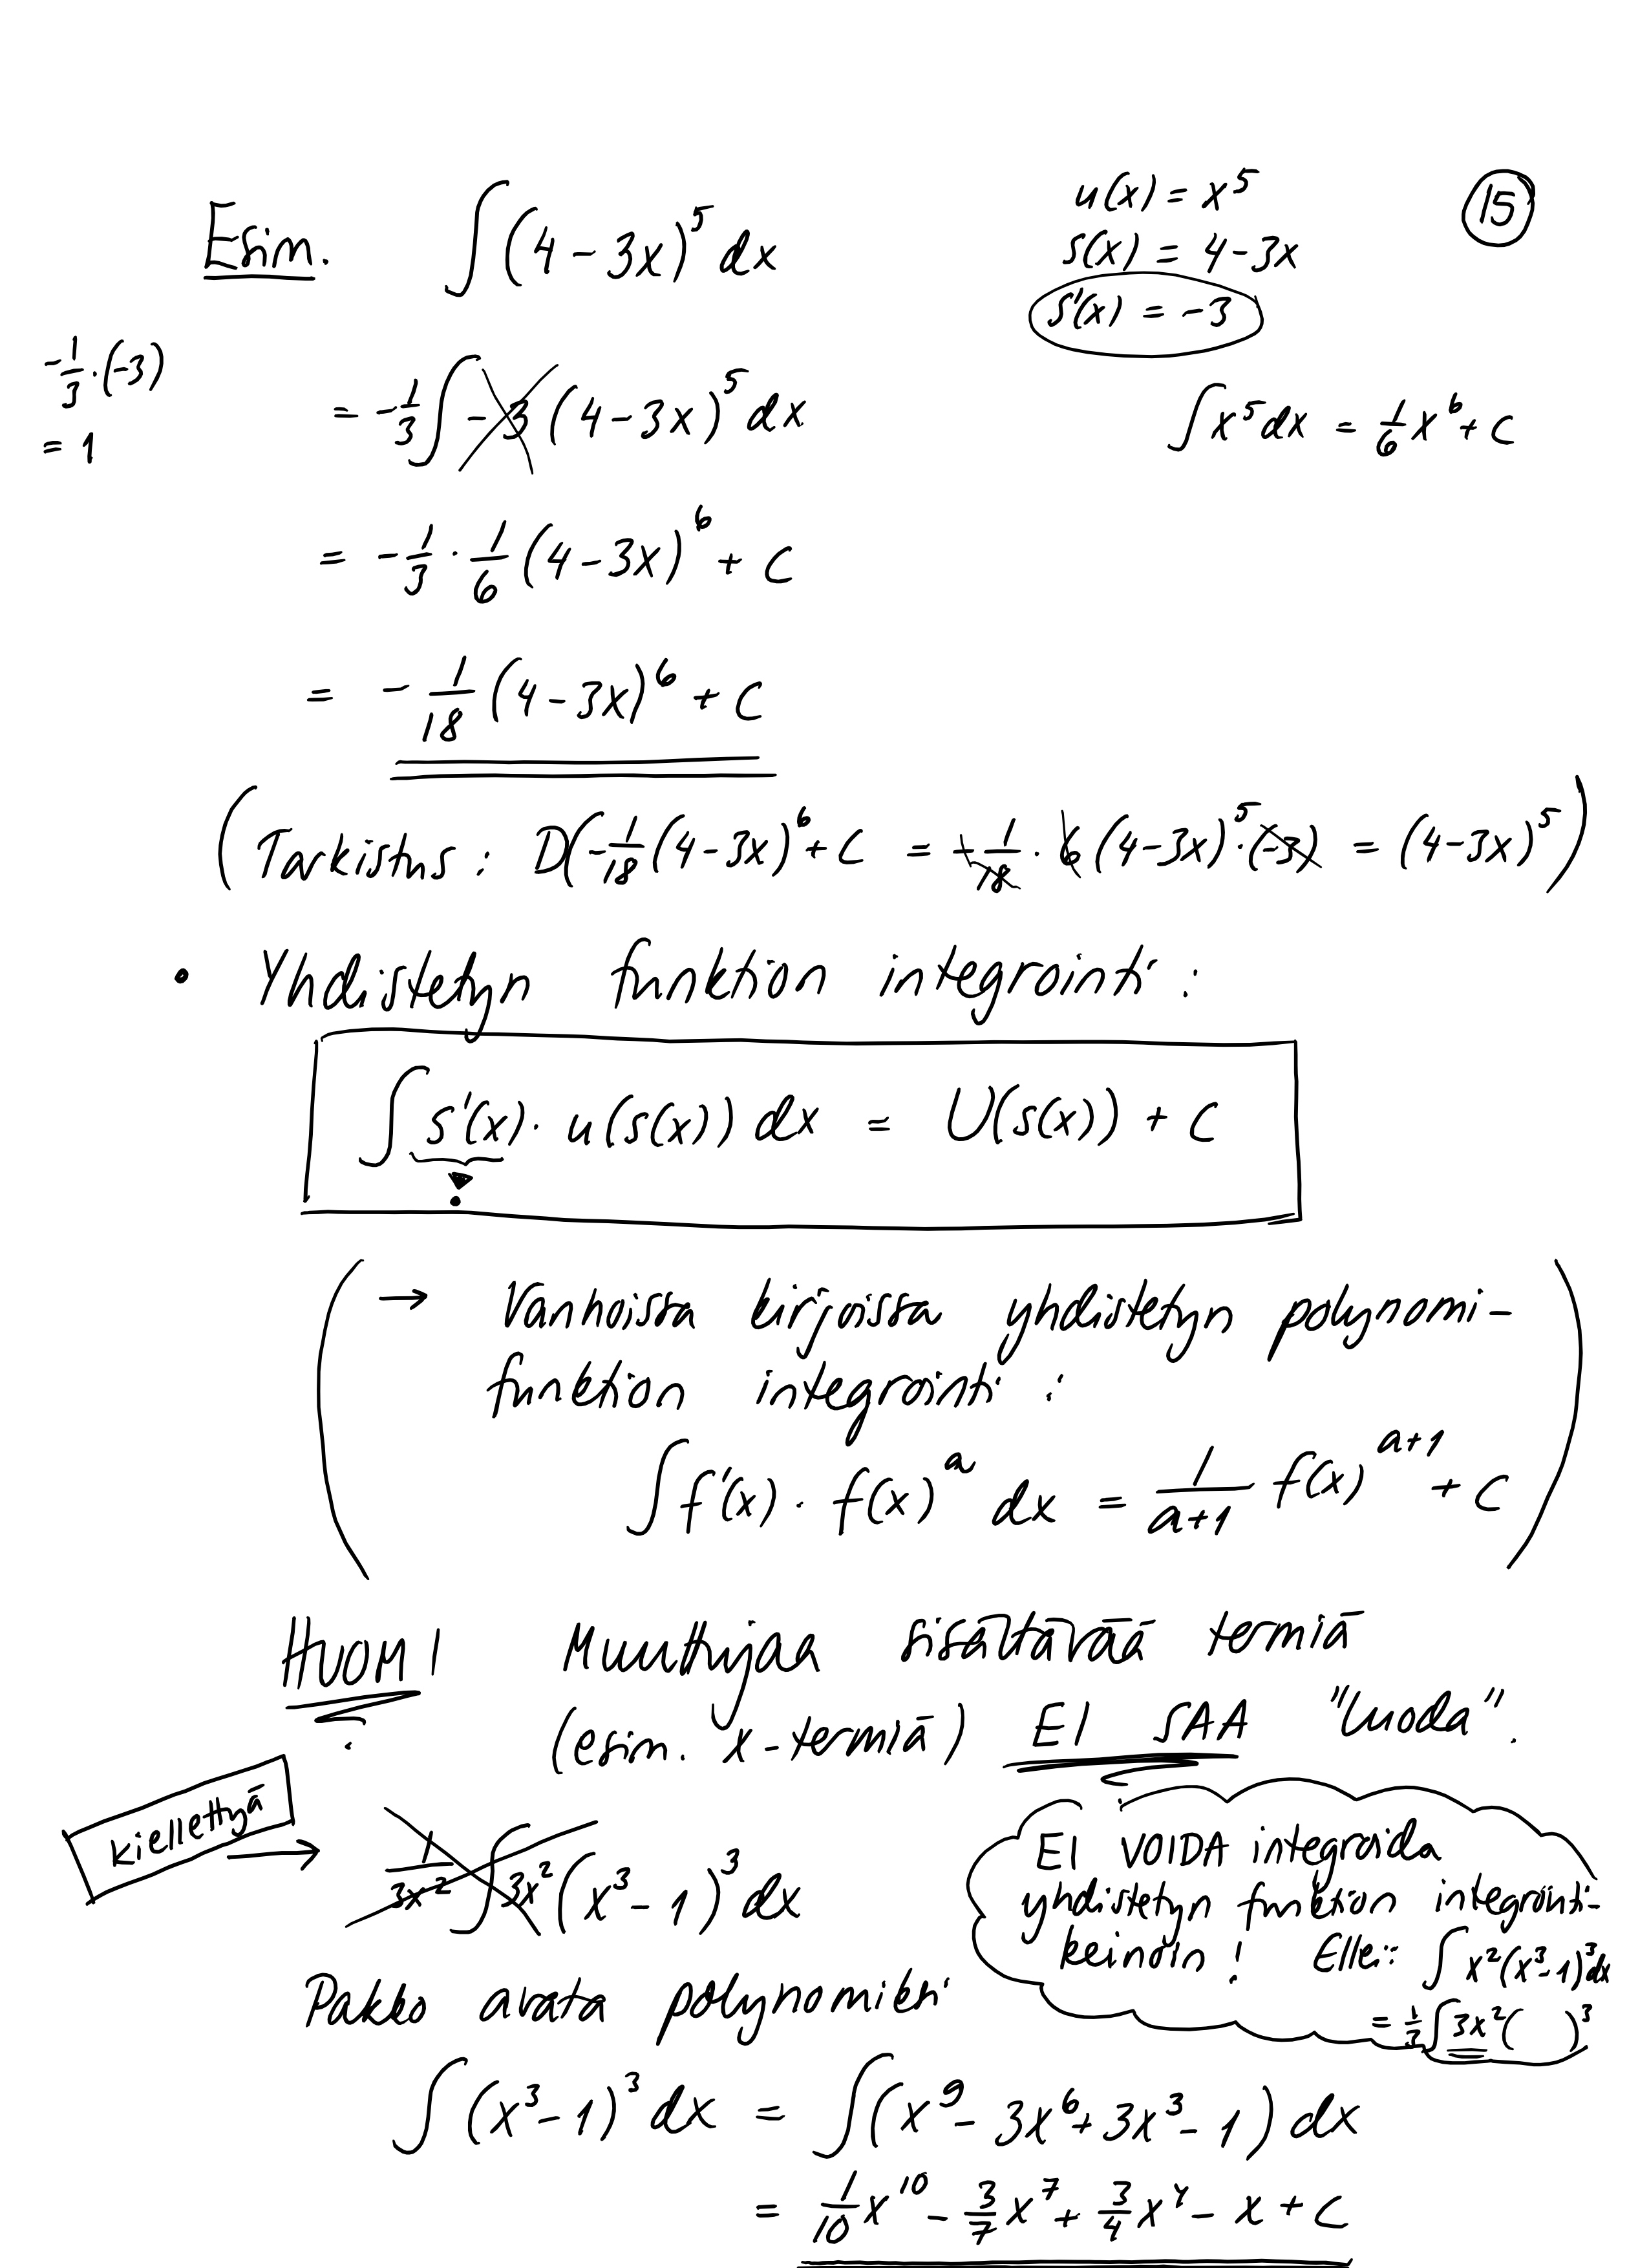 u(x) = x^5
15
Esim. ∫(4 - 3x)^5 dx
s(x) = 4-3x
s'(x) = -3
-1/3 · (-3)
= 1
= -1/3 ∫ -3 (4-3x)^5 dx
∫ x^5 dx = 1/6 x^6 + C
= -1/3 · 1/6 (4-3x)^6 + C
= - 1/18 (4-3x)^6 + C
(Tarkistus : D(-1/18 (4-3x)^6 + C = -1/18 · 6 (4-3x)^5 · (-3) = (4-3x)^5)
• Yhdistetyn funktion integrointi :
∫ s'(x) · u(s(x)) dx = U(s(x)) + C
!
( → Vanhoissa kirjoissa yhdistetyn polynomi-
funktion integrointi :
∫ f'(x) · f(x)^a dx = 1/(a+1) f(x)^(a+1) + C )
HUOM! Muuttujaa sisältävää termiä
(esim. x-termiä) EI SAA "luoda".
kiellettyä → 1/(3x^2) ∫ 3x^2 (x^3 - 1)^3 dx
EI VOIDA integroida
yhdistetyn funktion integrointi-
keinoin ! Ellei: ∫ x^2 (x^3-1)^3 dx
= 1/3 ∫ 3x^2 (  )^3
Pakko avata polynomiksi
∫(x^3 - 1)^3 dx = ∫(x^9 - 3x^6 + 3x^3 - 1) dx
= 1/10 x^10 - 3/7 x^7 + 3/4 x^4 - x + C